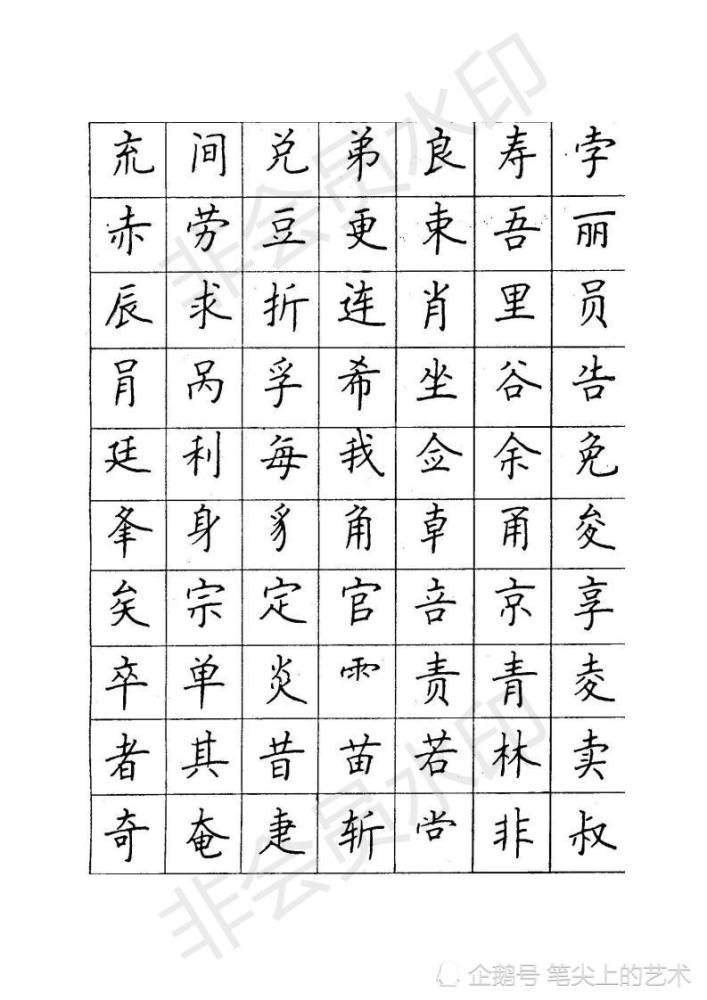 㐬 间 兑 弟 良 寿 孛
赤 劳 豆 更 束 吾 丽
辰 求 折 连 肖 里 员
肙 呙 孚 希 坐 谷 告
廷 利 每 我 佥 余 免
夆 身 豸 角 卓 甬 夋
矣 宗 定 官 咅 京 享
卒 单 炎 ⻗ 责 青 夌
者 其 昔 苗 若 林 卖
奇 奄 疌 斩 龸口 非 叔
非会员水印
非会员水印
企鹅号 笔尖上的艺术